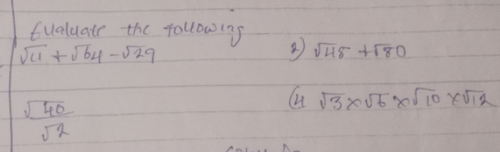 Evaluate the following
√4 + √64 - √29
2) √48 + √80
√40
√2
(4 √3 × √6 × √10 × √12